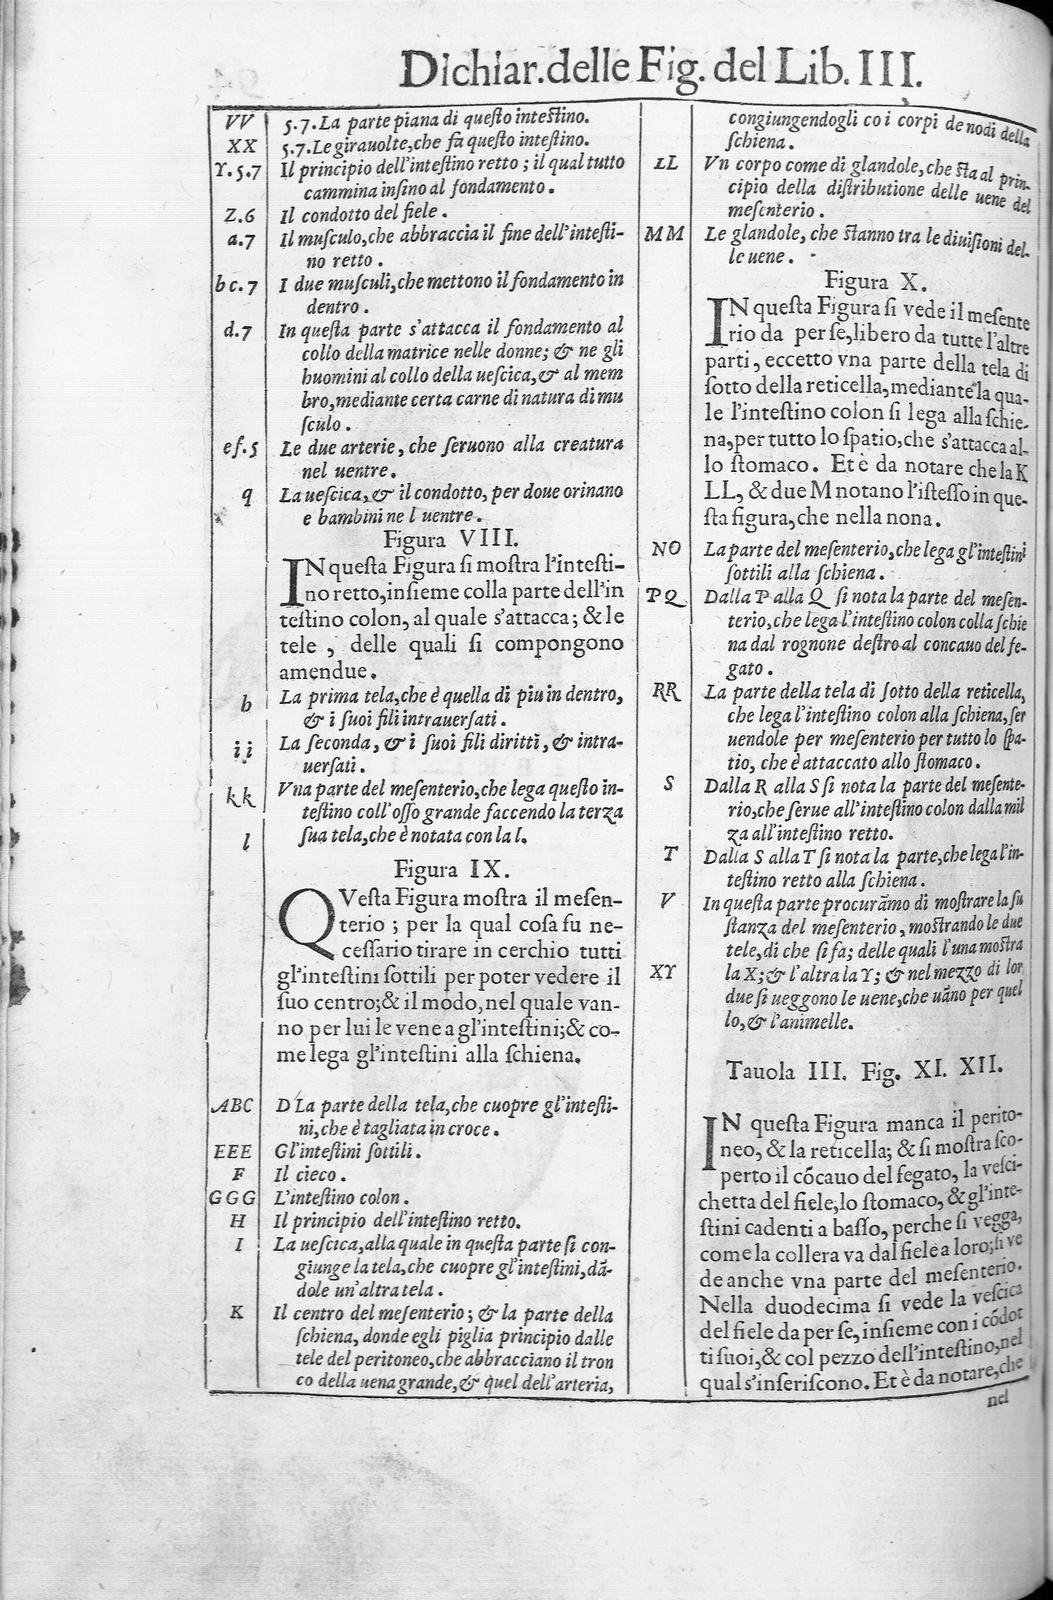 Dichiar. delle Fig. del Lib. III.
VV 5.7. La parte piana di questo intestino.
XX 5.7. Le girauolte, che fa questo intestino.
Y.5.7 Il principio dell'intestino retto; il qual tutto
cammina insino al fondamento.
Z.6 Il condotto del fiele.
a.7 Il musculo, che abbraccia il fine dell'intesti-
no retto.
bc.7 I due musculi, che mettono il fondamento in
dentro.
d.7 In questa parte s'attacca il fondamento al
collo della matrice nelle donne; & ne gli
huomini al collo della uescica, & al mem
bro, mediante certa carne di natura di mu
sculo.
ef.5 Le due arterie, che seruono alla creatura
nel uentre.
q La uescica, & il condotto, per doue orinano
e bambini ne l uentre.
Figura VIII.
IN questa Figura si mostra l'intesti-
no retto, insieme colla parte dell'in
testino colon, al quale s'attacca; & le
tele, delle quali si compongono
amendue.
b La prima tela, che è quella di piu in dentro,
& i suoi fili intrauersati.
ii La seconda, & i suoi fili diritti, & intra-
uersati.
kk Vna parte del mesenterio, che lega questo in-
testino coll'osso grande faccendo la terza
l sua tela, che è notata con la l.
Figura IX.
QVesta Figura mostra il mesen-
terio; per la qual cosa fu ne-
cessario tirare in cerchio tutti
gl'intestini sottili per poter vedere il
suo centro; & il modo, nel quale van-
no per lui le vene a gl'intestini; & co-
me lega gl'intestini alla schiena.
ABC D La parte della tela, che cuopre gl'intesti-
ni, che è tagliata in croce.
EEE Gl'intestini sottili.
F Il cieco.
GGG L'intestino colon.
H Il principio dell'intestino retto.
I La uescica, alla quale in questa parte si con-
giunge la tela, che cuopre gl'intestini, dā-
dole un'altra tela.
K Il centro del mesenterio; & la parte della
schiena, donde egli piglia principio dalle
tele del peritoneo, che abbracciano il tron
co della uena grande, & quel dell'arteria,
congiungendogli co i corpi de nodi della
schiena.
LL Vn corpo come di glandole, che sta al prin-
cipio della distributione delle uene del
mesenterio.
MM Le glandole, che stanno tra le diuisioni del-
le uene.
Figura X.
IN questa Figura si vede il mesente
rio da per se, libero da tutte l'altre
parti, eccetto vna parte della tela di
sotto della reticella, mediante la qua-
le l'intestino colon si lega alla schie-
na, per tutto lo spatio, che s'attacca al-
lo stomaco. Et è da notare che la K
LL, & due M notano l'istesso in que-
sta figura, che nella nona.
NO La parte del mesenterio, che lega gl'intestini
sottili alla schiena.
PQ Dalla P alla Q si nota la parte del mesen-
terio, che lega l'intestino colon colla schie
na dal rognone destro al concauo del fe-
gato.
RR La parte della tela di sotto della reticella,
che lega l'intestino colon alla schiena, ser
uendole per mesenterio per tutto lo spa-
tio, che è attaccato allo stomaco.
S Dalla R alla S si nota la parte del mesente-
rio, che serue all'intestino colon dalla mil
za all'intestino retto.
T Dalla S alla T si nota la parte, che lega l'in-
testino retto alla schiena.
V In questa parte procurāmo di mostrare la su
stanza del mesenterio, mostrando le due
tele, di che si fa; delle quali l'una mostra
XY la X; & l'altra la Y; & nel mezzo di lor
due si ueggono le uene, che uāno per quel
lo, & l'animelle.
Tauola III. Fig. XI. XII.
IN questa Figura manca il perito-
neo, & la reticella; & si mostra sco-
perto il cōcauo del fegato, la vesci-
chetta del fiele, lo stomaco, & gl'inte-
stini cadenti a basso, perche si vegga,
come la collera va dal fiele a loro; si ve
de anche vna parte del mesenterio.
Nella duodecima si vede la vescica
del fiele da per se, insieme con i cōdot
ti suoi, & col pezzo dell'intestino, nel
qual s'inseriscono. Et è da notare, che
nel